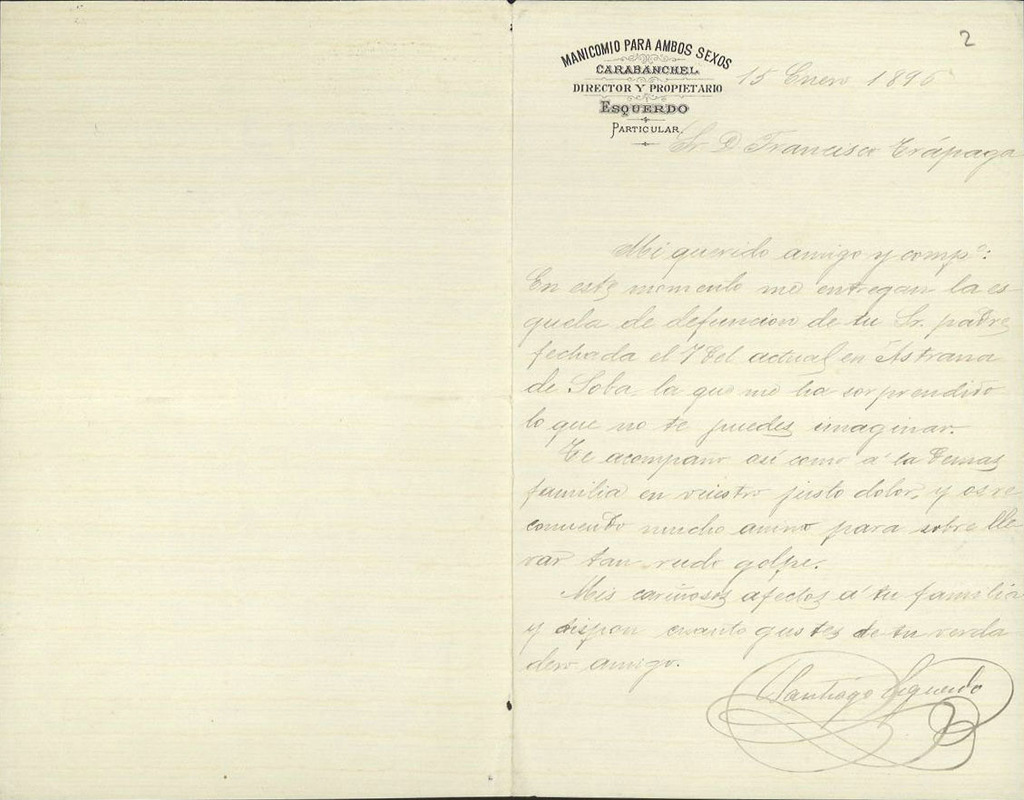 2
MANICOMIO PARA AMBOS SEXOS
CARABANCHEL
DIRECTOR Y PROPIETARIO
ESQUERDO
PARTICULAR
15 Enero 1896
Sr. D. Francisco Trápaga
Mi querido amigo y compº:
En este momento me entregan la es-
quela de defuncion de tu Sr. padre
fechada el 7 del actual en Astrana
de Soba, la que me ha sorprendido
lo que no te puedes imaginar.
Te acompaño asi como á la demas
familia en vuestro justo dolor, y os re
comiendo mucho animo para sobre lle-
var tan rudo golpe.
Mis cariñosos afectos á tu familia
y dispon cuanto gustes de tu verda
dero amigo.
Santiágo Esquerdo